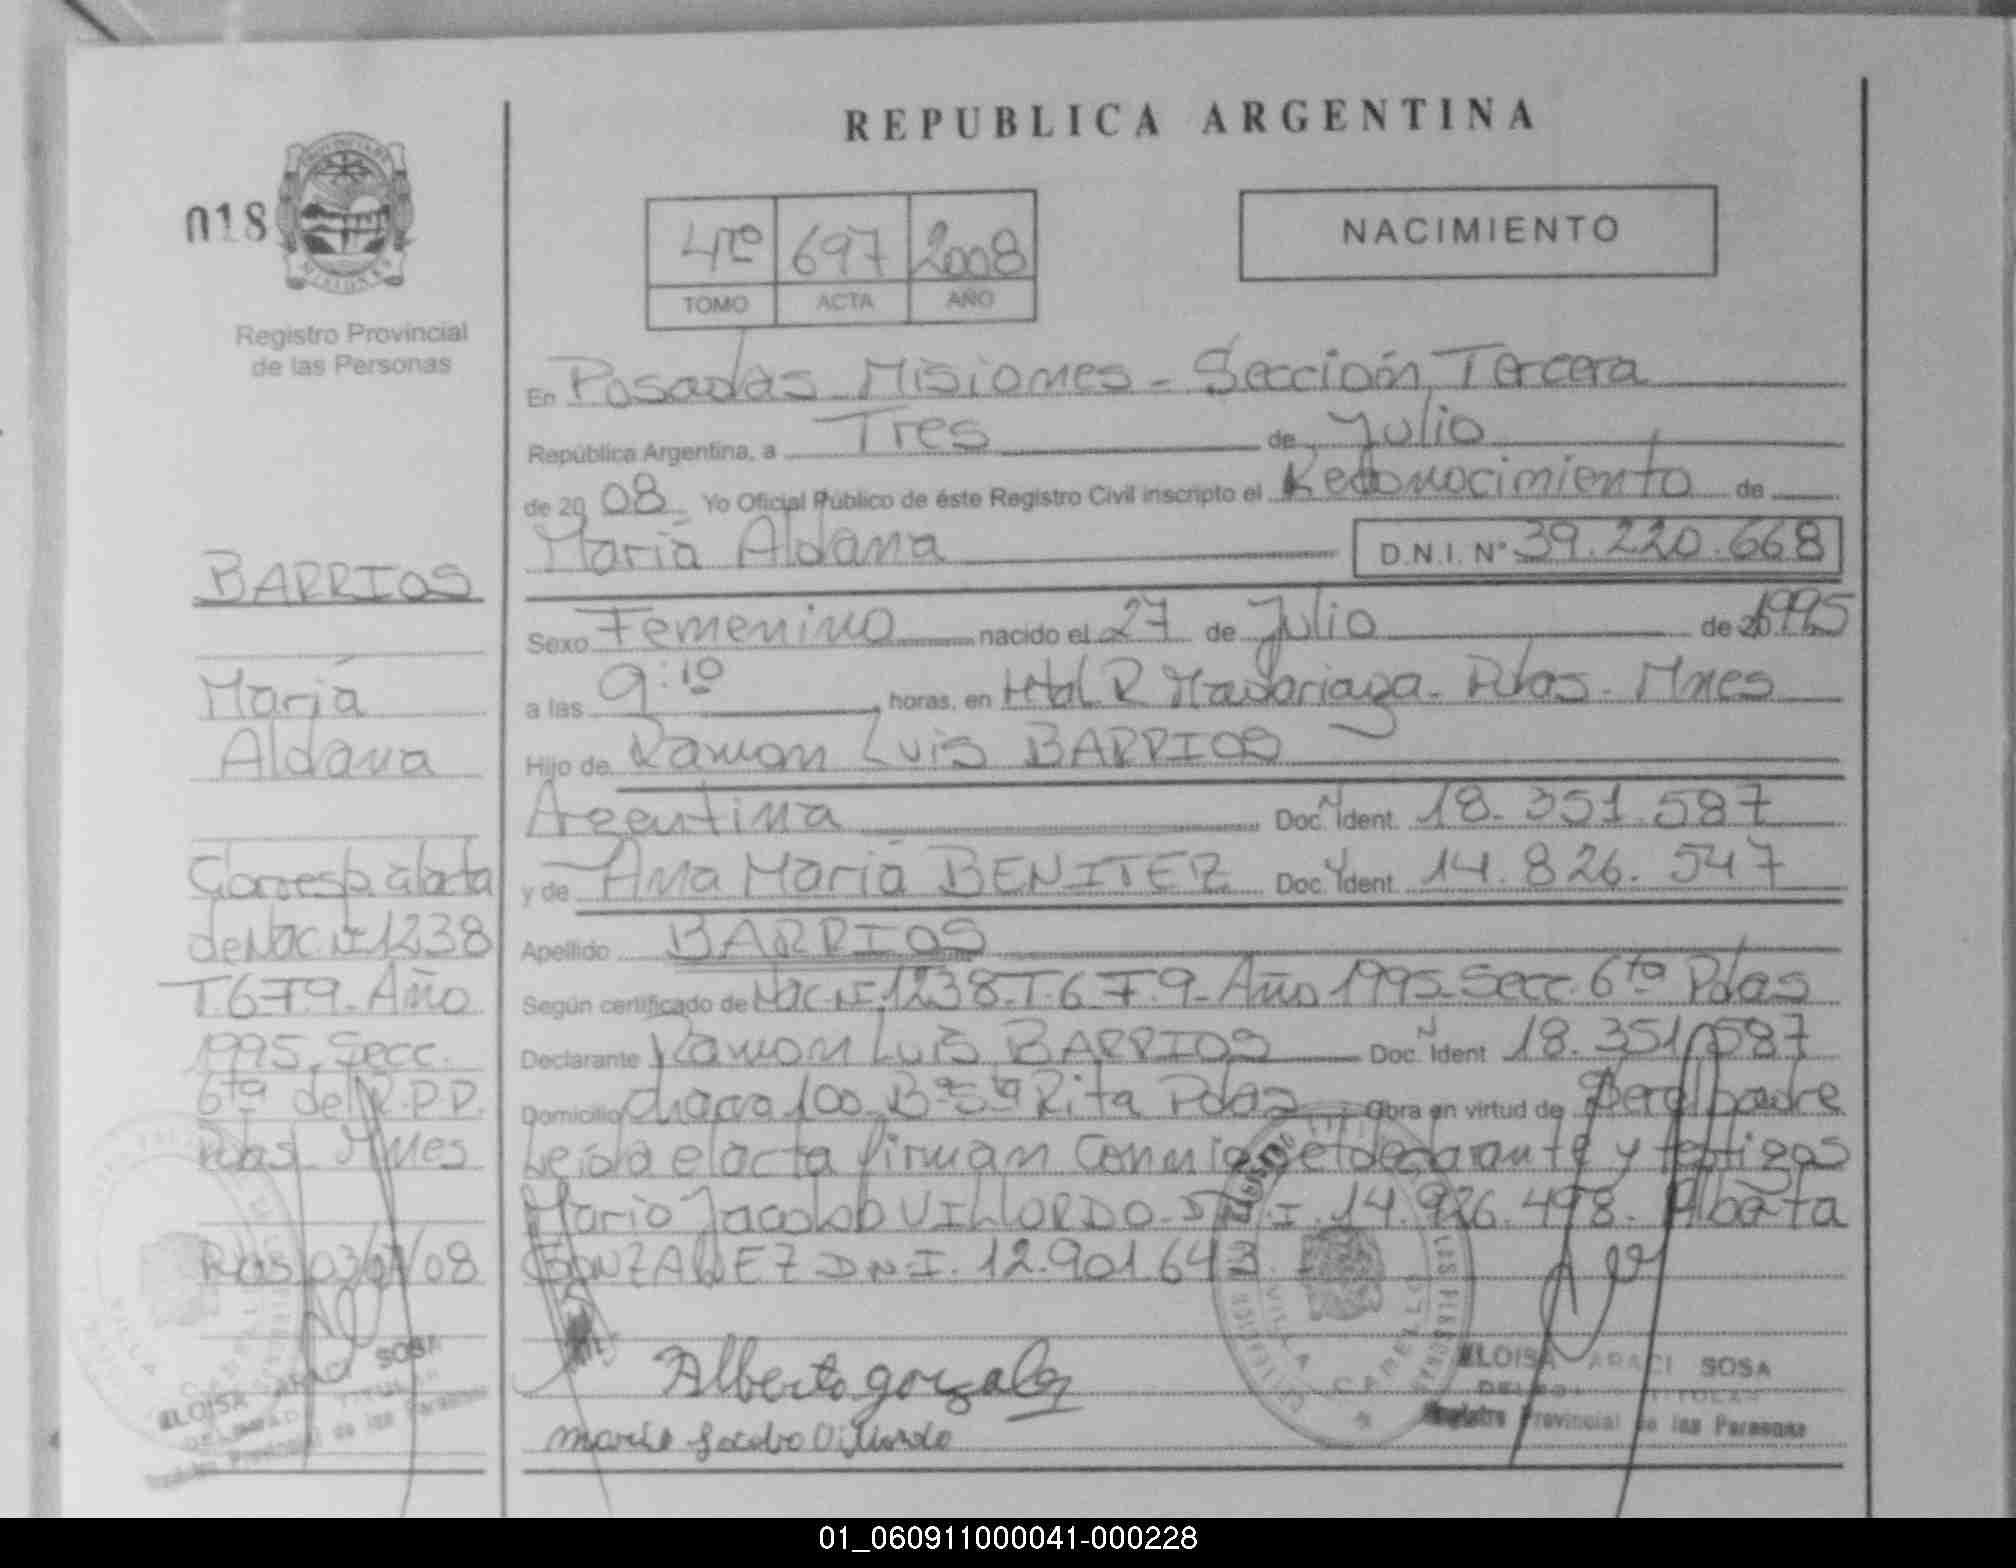 REPUBLICA ARGENTINA
018
NACIMIENTO
4to 697 2008
TOMO ACTA AÑO
Registro Provincial
de las Personas
En Posadas Misiones - Sección Tercera
República Argentina, a Tres de Julio
de 2008 Yo Oficial Público de éste Registro Civil inscripto el Reconocimiento de
María Aldana D.N.I. N° 39.220.668
BARRIOS
María
Aldana
Sexo Femenino nacido el 27 de Julio de 1995
a las 9:10 horas, en Htal. R Madariaga - Pdas - Mnes
Hijo de Ramon Luis BARRIOS
Argentina Doc. Ident. 18.351.587
y de Ana María BENITEZ Doc. Ident. 14.826.547
Apellido BARRIOS
Según certificado de Nac. N° 1238 - T. 6 F. 9 - Año 1995 - Secc. 6ta Pdas
Declarante Ramon Luis BARRIOS Doc. Ident 18.351.587
Domicilio chacra 100 B° Sta Rita Pdas Obra en virtud de Ser el padre
Leida el acta firman conmigo el declarante y testigos
Mario Jacobo VILLORDO - D.N.I. 14.926.498 - Alberto
GONZALEZ D.N.I. 12.901.643
Corresp. al acta
de Nac. N° 1238
T. 6 F. 9 - Año
1995. Secc.
6ta del R.P.P.
Pdas Mnes
Pdas 03/07/08
Alberto gonzalez
mario Jacobo Villordo
ELOISA ARACI SOSA
DELEGADA TITULAR
Registro Provincial de las Personas
ELOISA ARACI SOSA
DELEGADA TITULAR
Registro Provincial de las Personas
VILLA CABELLO
01_060911000041-000228